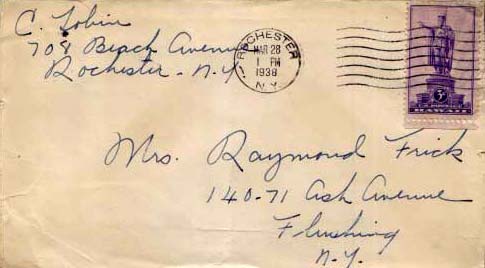 C. Tobin
708 Beach Avenue
Rochester - N.Y.
ROCHESTER
MAR 28
1 PM
1938
N.Y.
3¢
HAWAII
Mrs. Raymond Frick
140-71 Ash Avenue
Flushing
N.Y.